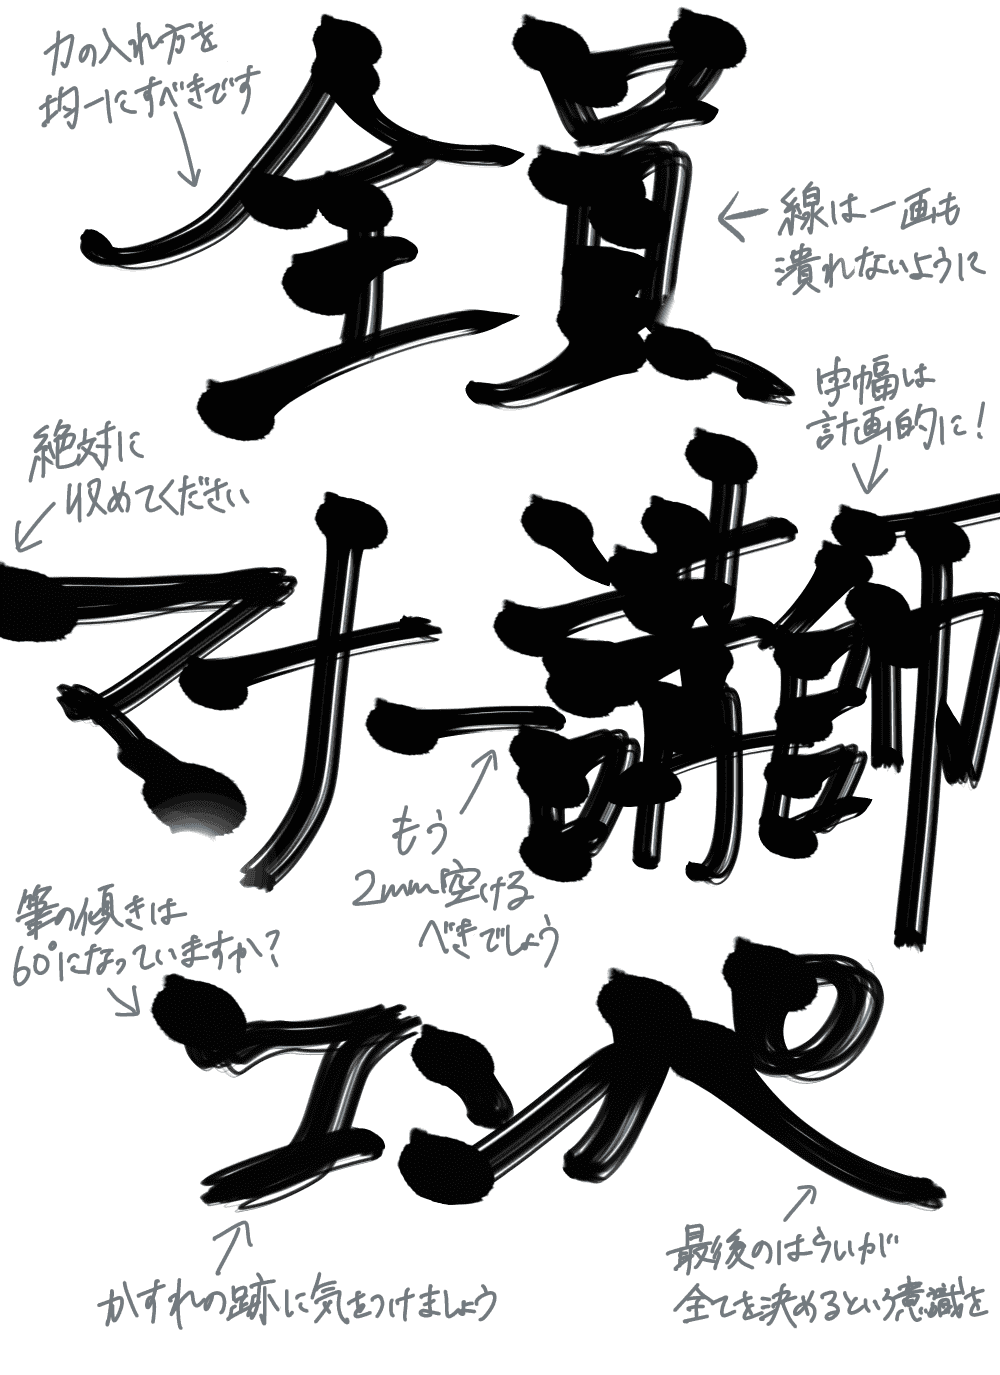 力の入れ方を
均一にすべきです
全員
線は一画も
潰れないように
字幅は
計画的に!
絶対に
収めてください
マナー講師
もう
2mm空ける
べきでしょう
筆の傾きは
60°になっていますか?
コンペ
かすれの跡に気をつけましょう
最後のはらいが
全てを決めるという意識を